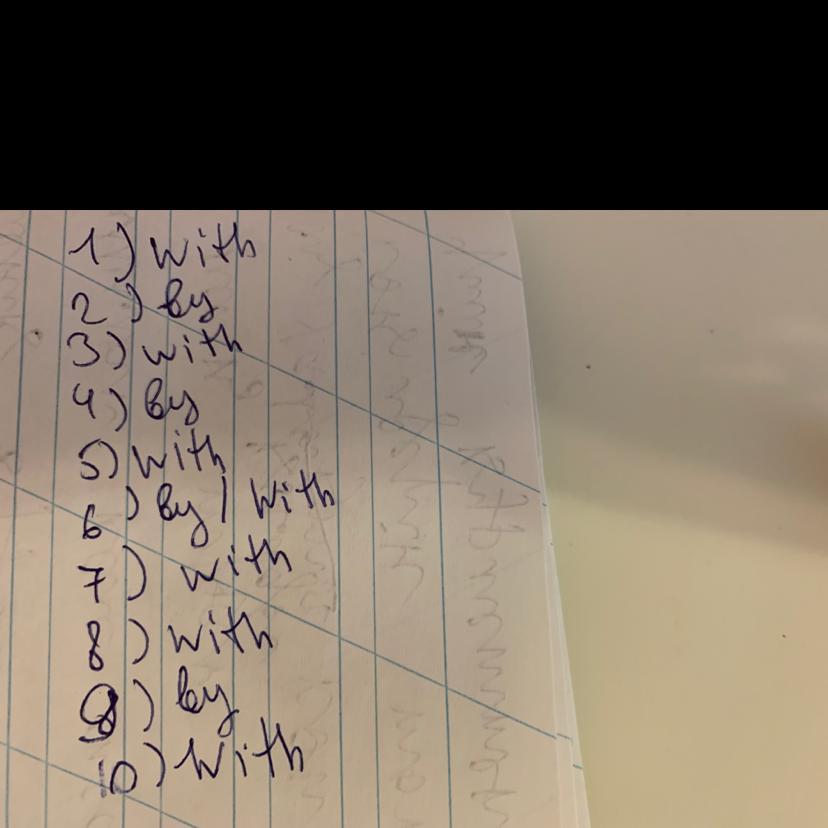 1) with
2) by
3) with
4) by
5) with
6) by / with
7) with
8) with
9) by
10) with